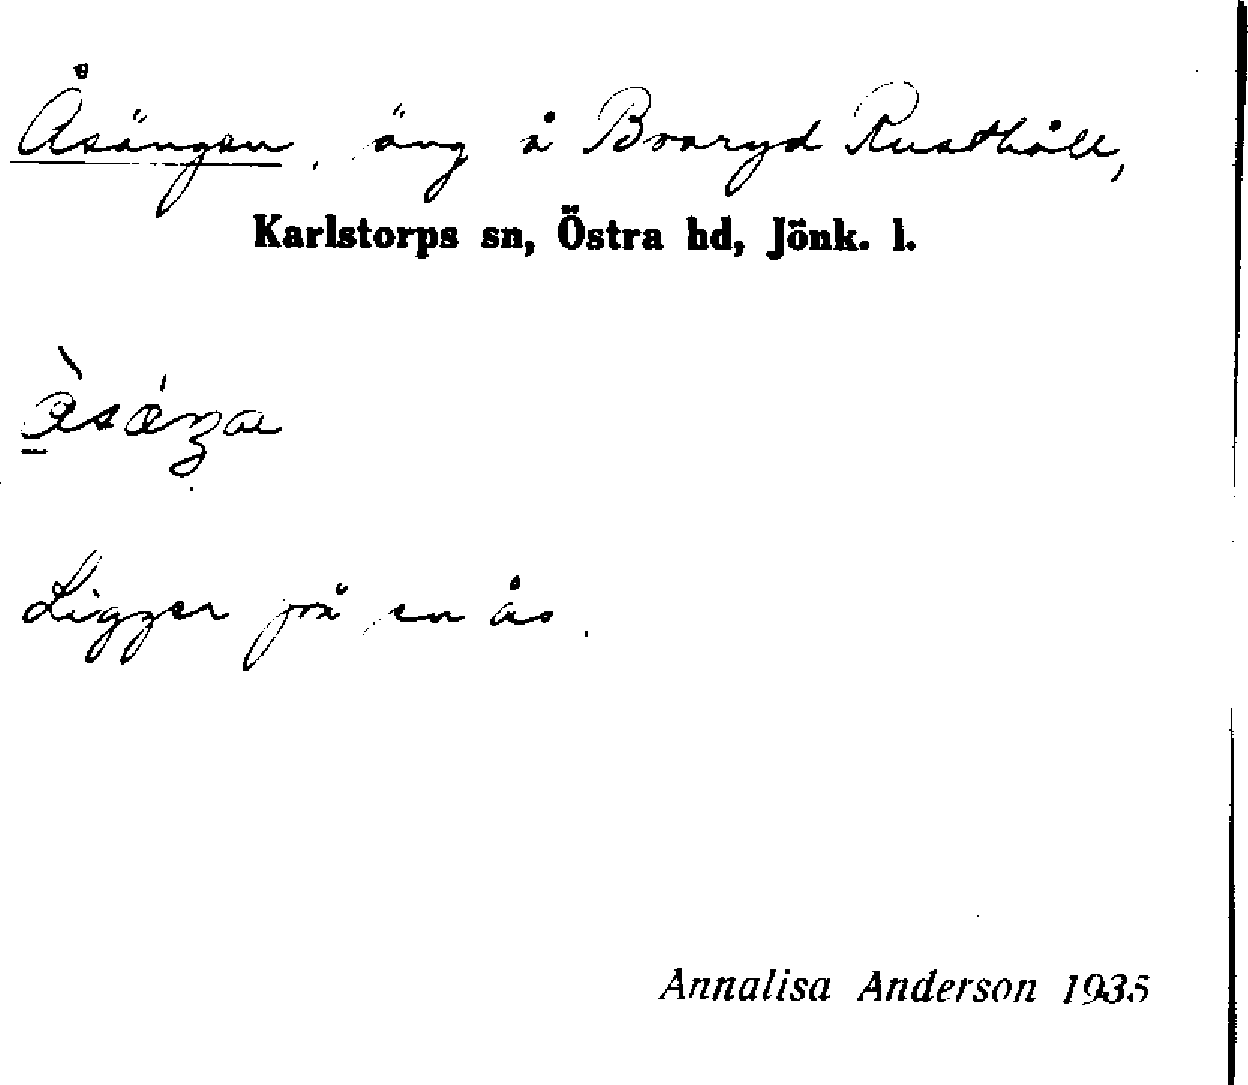 Åsängen, äng å Braryd Rusthåll,
Karlstorps sn, Östra hd, Jönk. l.
Ligger på en ås.
Annalisa Anderson 1935